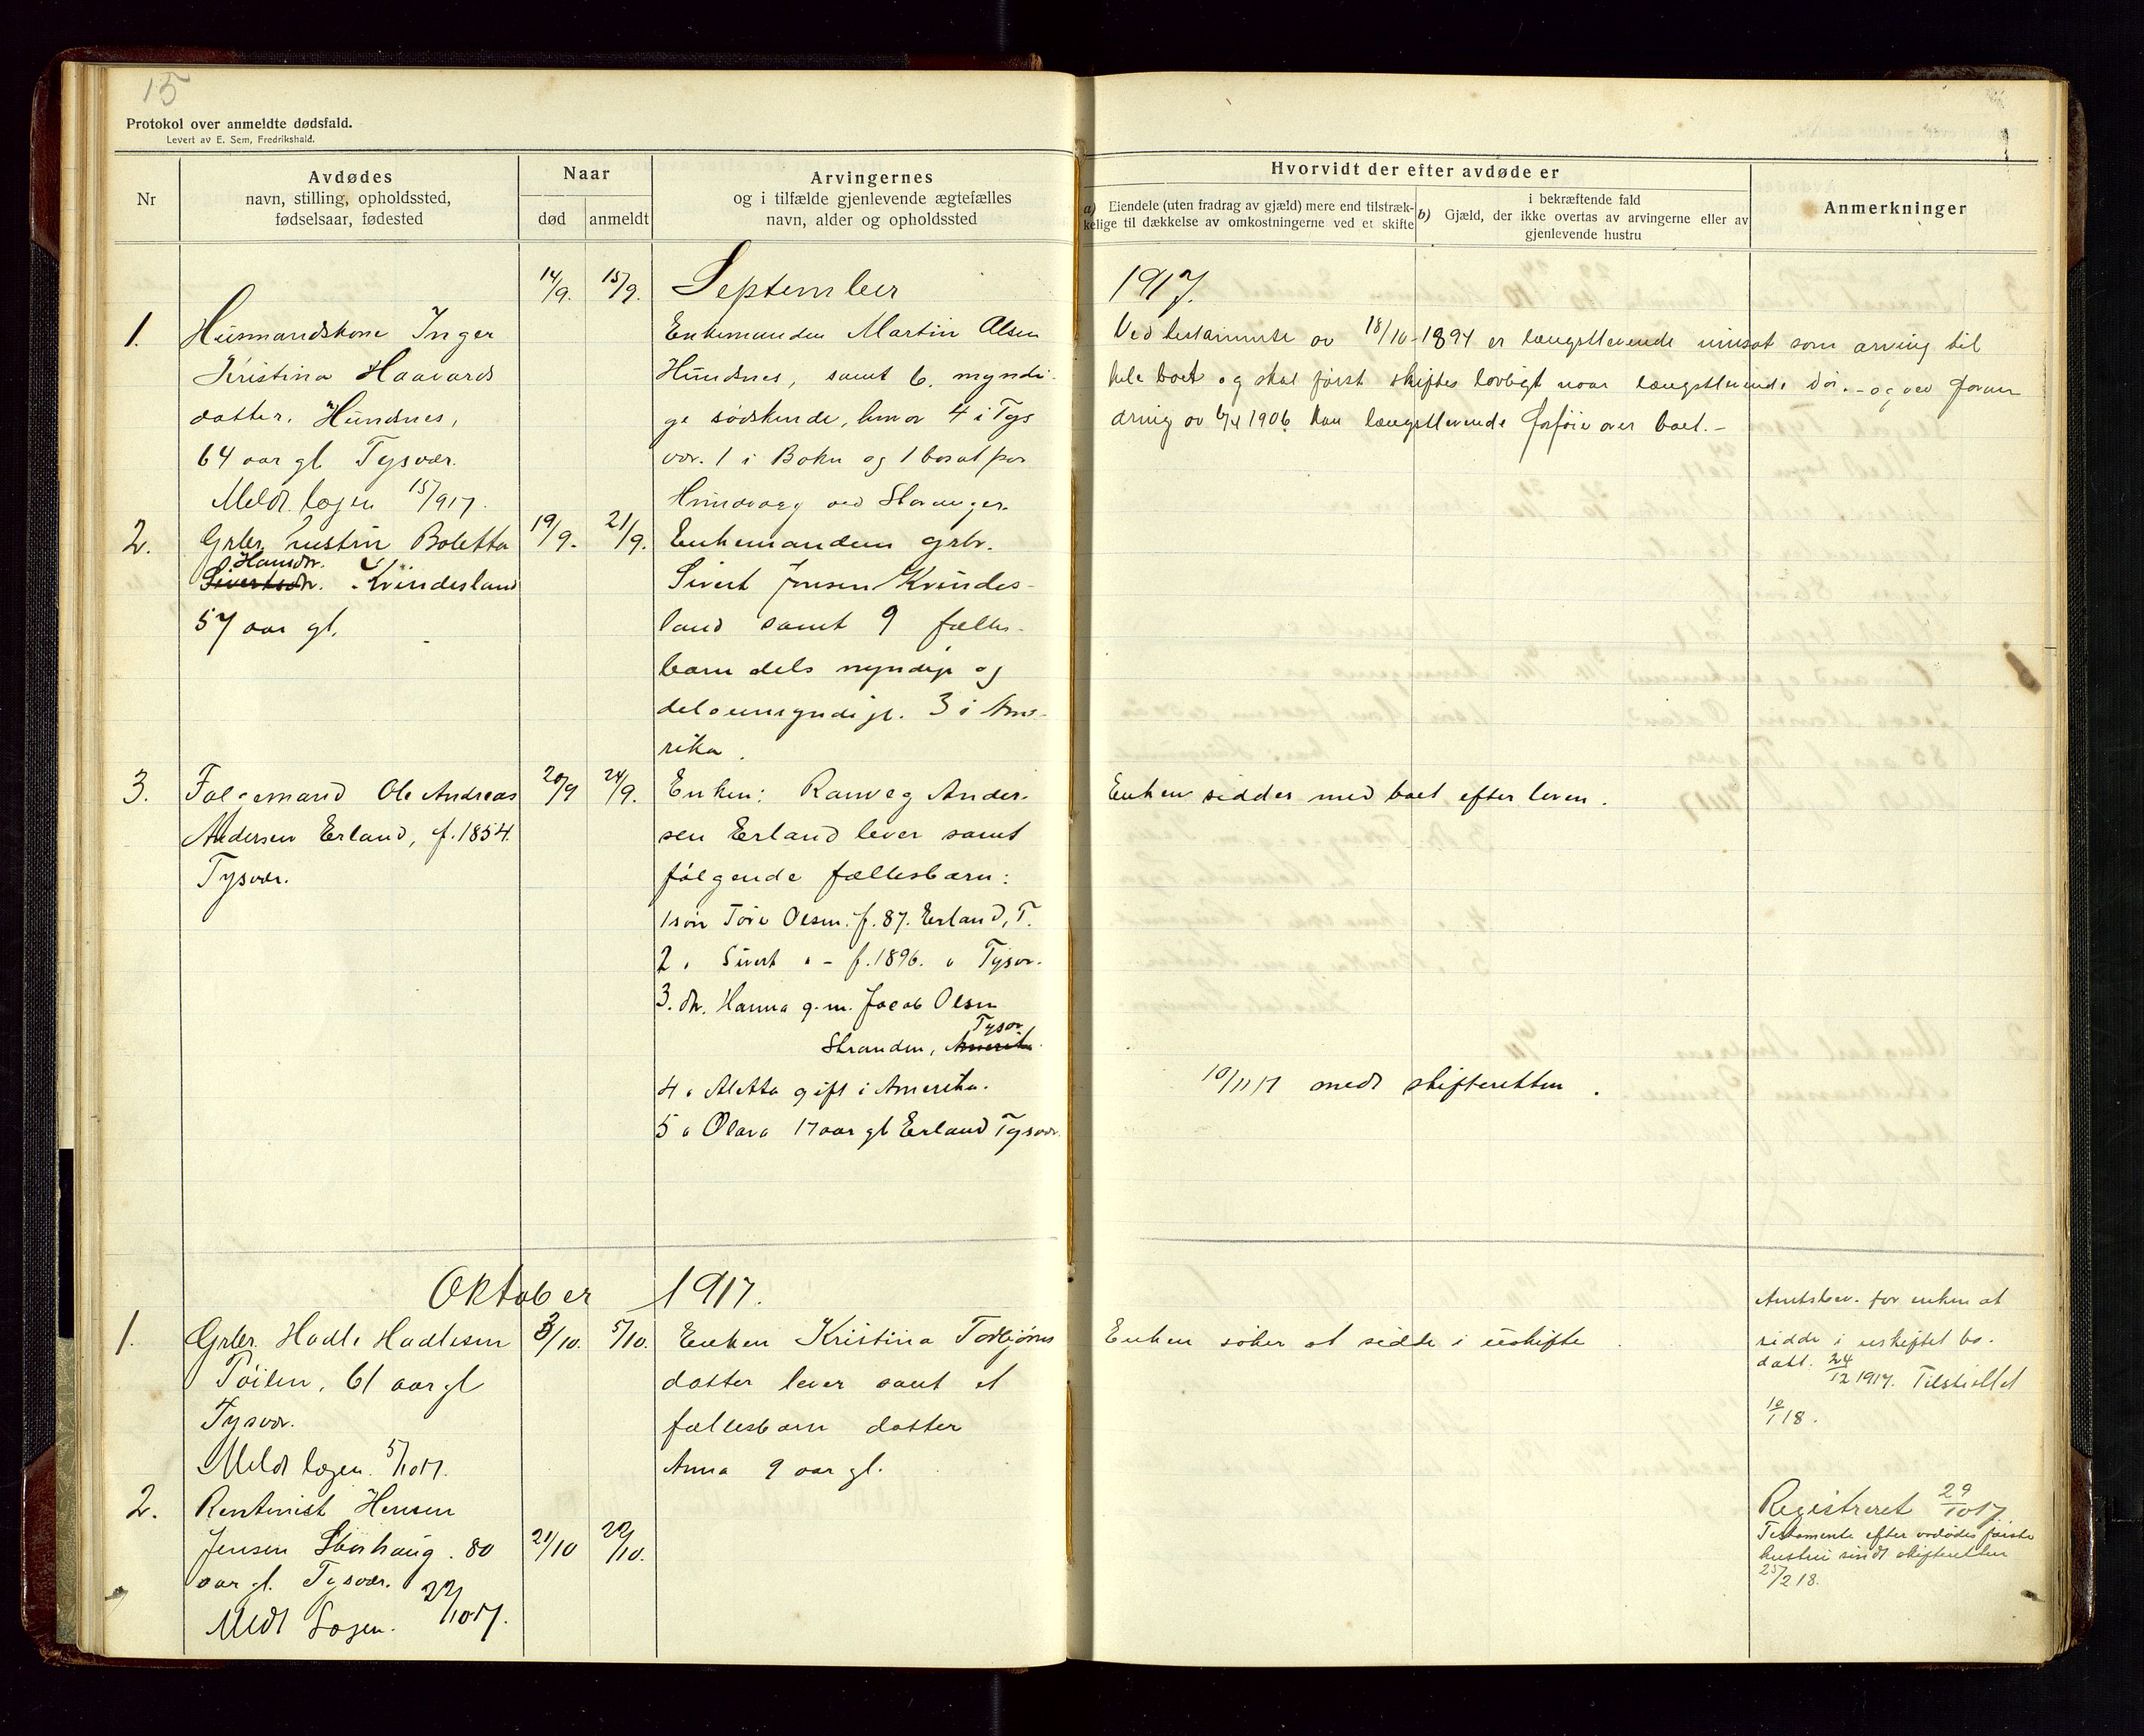 15
Protokol over anmeldte dødsfald.
Levert av E. Sem, Fredrikshald.
Nr
Avdødes
navn, stilling, opholdssted,
fødselsaar, fødested
Naar
død
anmeldt
Arvingernes
og i tilfælde gjenlevende ægtefælles
navn, alder og opholdssted
Hvorvidt der efter avdøde er
a) Eiendele (uten fradrag av gjæld) mere end tilstræk-
kelige til dækkelse av omkostningerne ved et skifte
i bekræftende fald
b) Gjæld, der ikke overtas av arvingerne eller av
gjenlevende hustru
Anmerkninger
September 1917.
1.
Husmandskone Inger
Kristina Haavards
datter, Hundsnes,
64 aar gl. Tysvær.
Meldt lægen 15/9 17.
14/9.
15/9.
Enkemanden Martin Olsen
Hundsnes, samt 6. myndi-
ge sødskende, hvorav 4 i Tys
vær. 1 i Bokn og 1 bosat paa
Hundvaag ved Stavanger.
Ved testamente av 18/10-1894 er længstlevende indsat som arving til
hele boet og skal først skiftes lovligt naar længstlevende dør. - og ved foran
dring av 6/4 1906 kan længstlevende forføie over boet. -
2.
Grbr. hustru Boletta
Hansdr.
Sivertsdr. Kvindesland
57 aar gl.
19/9.
21/9.
Enkemanden grbr.
Sivert Jensen Kvindes-
land samt 9 fælles-
barn dels myndige og
dels umyndige. 3 i Ame-
rika.
3.
Folgemand Ole Andreas
Andersen Erland, f. 1854.
Tysvær.
20/9
24/9.
Enken: Ranveg Ander-
sen Erland lever samt
følgende fællesbarn:
1 søn Tore Olsen. f. 87. Erland, T.
2 " Sivert " - f. 1896. " Tysvr.
3. dtr. Hanna g. m. Jacob Olsen
Tysvr
Stranden, Amerika.
4 " Aletta gift i Amerika.
5 " Olava 17 aar gl Erland Tysvær
Enken sidder med boet efter loven.
10/11 17 medt skifteretten.
Oktober 1917.
1.
Grbr. Hadle Hadlesen
Tøilen, 61 aar gl
Tysvær.
Meldt lægen. 5/10 17.
3/10.
5/10.
Enken Kristina Torbjørns
datter lever samt et
fællesbarn datter
Anna 9 aar gl.
Enken søker at sidde i uskifte.
Amtsbev. for enken at
sidde i uskiftet bo.
datl. 24/12 1917. Tilstillet
10/1 18.
2.
Rentenist Hensen
Jensen Storhaug. 80
aar gl. Tysvær.
Medt Lægen. 22/10 17.
21/10
22/10.
Registreret 29/10 17
Testamente efter avdødes første
hustru sendt skifteretten
25/2 18.